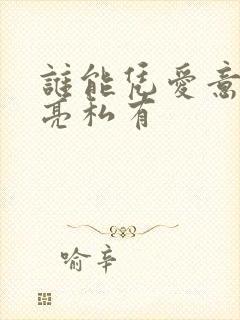 誰能凭愛意
亮私有
喻辛